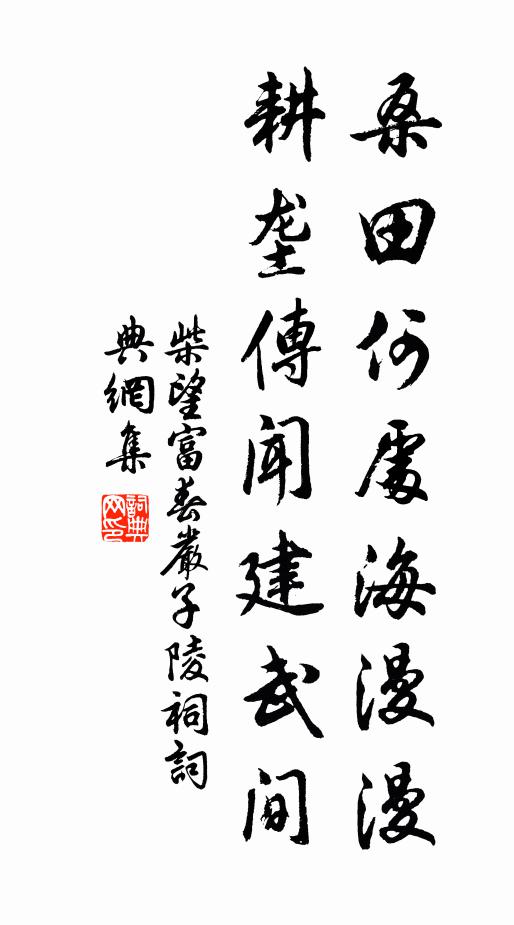 桑田何處海漫漫
耕垄傳聞建武间
柴望富春嚴子陵祠詞
典網集
詞典
网印